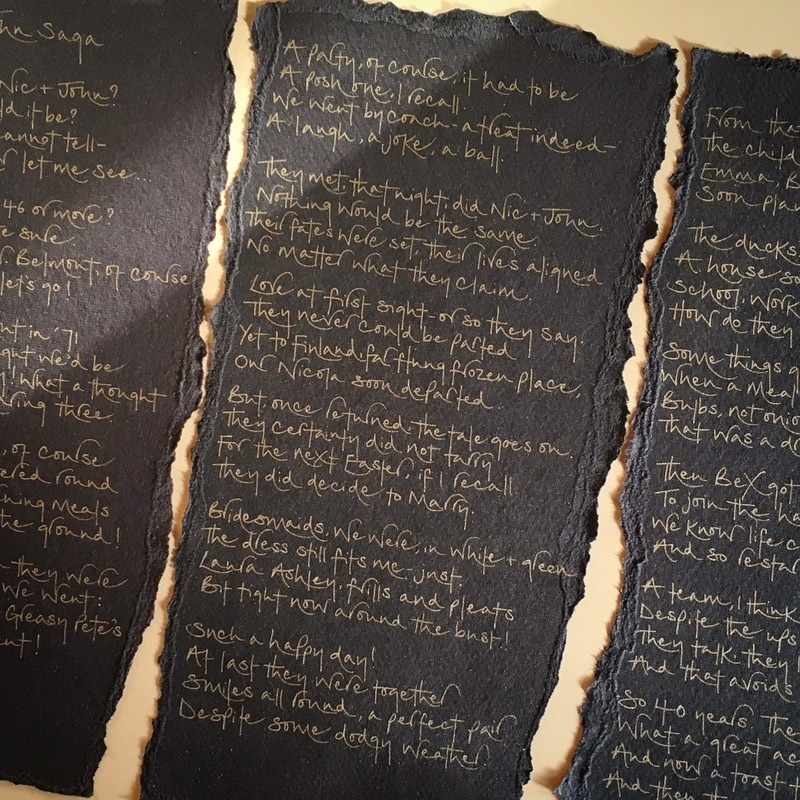 hn Saga
Nic + John?
ld it be?
cannot tell-
r let me see..
46 or more?
e sure.
r Belmont, of course
let's go!
nt in '71
ght we'd be
! What a thought
ring three.
, of course
ered round
ning Meals
the ground!
they were
we went:
Greasy Pete's
nt!
A party, of course it had to be
A posh one, I recall.
We went by coach - a treat indeed-
A laugh, a joke, a ball.
They met, that night, did Nic + John.
Nothing would be the same.
Their fates were set, their lives aligned
No matter what they claim.
Love at first sight- or so they say.
They never could be parted
Yet to Finland, far flung frozen place,
Our Nicola soon departed..
But, once returned, the tale goes on,
They certainly did not tarry
For the next Easter, if I recall
They did decide to Marry.
Bridesmaids, we were, in white + green
The dress still fits me - just.
Laura Ashley, frills and pleats
Bit tight now around the bust!
Such a happy day!
At last they were together
Smiles all round, a perfect pair
Despite some dodgy weather
From the
the child
Emma, B
Soon pla
The ducks,
A house so
School, work
How do they
Some things g
When a Meal
Bulbs, not onio
That was a dr
Then Bex got
To join the ha
We know life, c
And so restar
A team, I think
Despite the ups
They talk, they
And that avoids
So 40 years The
What a great ac
And now a toast t
And then t